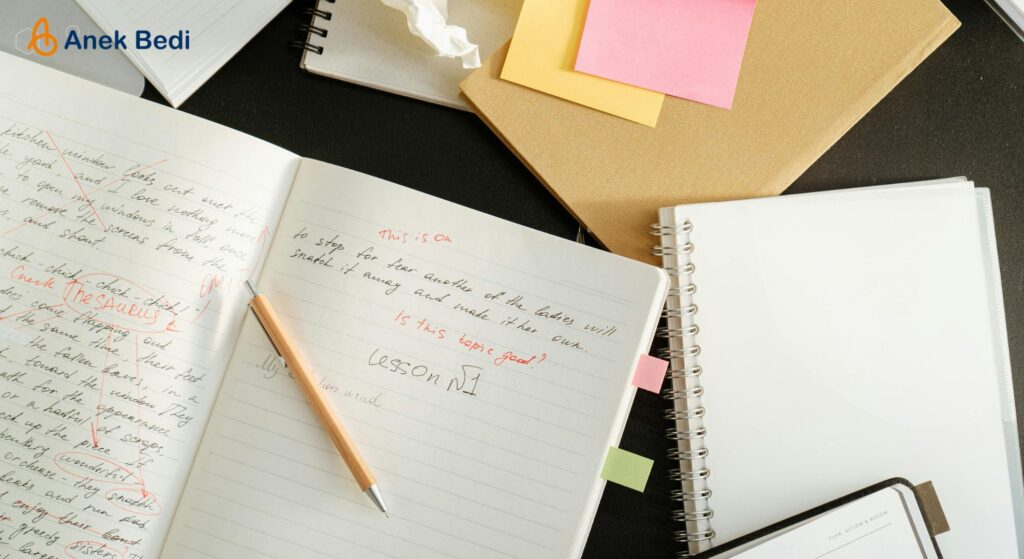 Anek Bedi
kitchen window looks out over the
yard and I love nothing more
to open my windows in fall once
remove the screens from the
and shout
chick-chick, chick-chick!
Check Thesaurus
come flapping and
the same time, their feet
the fallen leaves, in a
toward the window. They
for the appearance
or a handful of scraps,
up the piece of
wonderful
or cheese - they snatch
and run and
enjoy their
greedy sisters
This is OK
to stop for fear another of the ladies will
snatch it away and make it her own.
Is this topic good?
Lesson №1
My kitchen wind
PLAN, ACTION & REVIEW